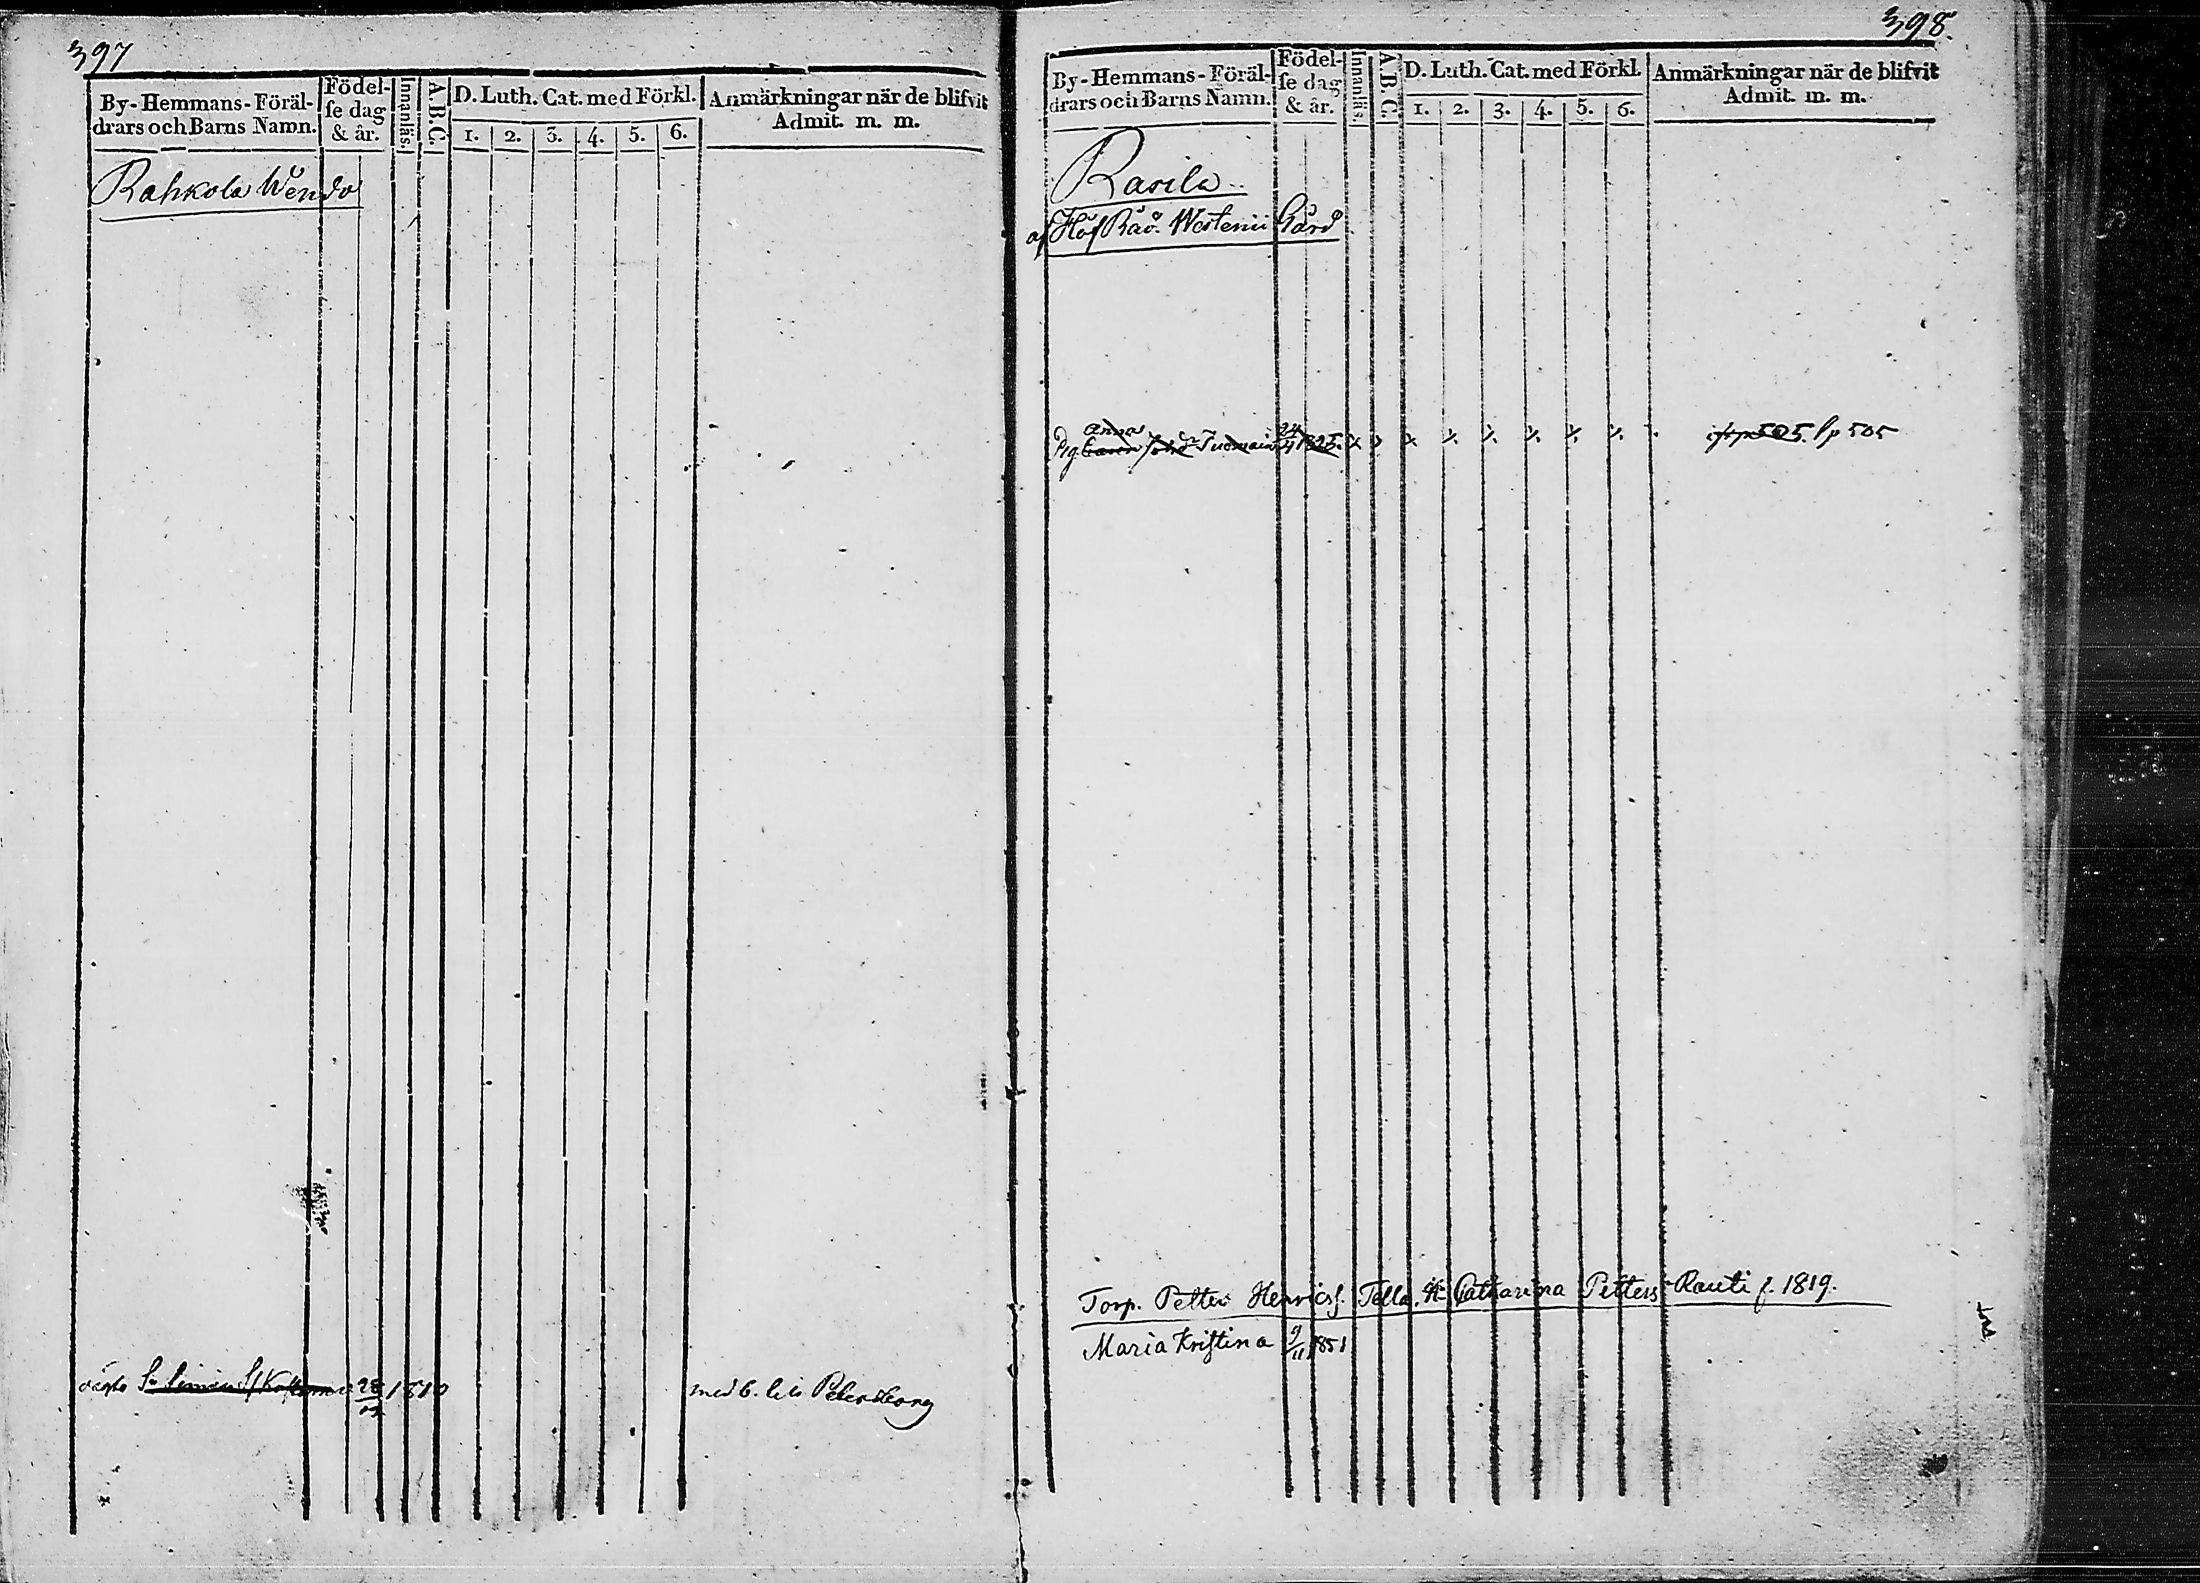 397
By-Hemmans-Föräl-
drars och Barns Namn.
Födel-
se dag
& år.
Innanläs.
A.B.C.
D. Luth. Cat. med Förkl.
1. 2. 3. 4. 5. 6.
Anmärkningar när de blifvit
Admit. m. m.
Rahkola Wendo
28 1810
med b. til Petersborg
398.
By-Hemmans-Föräl-
drars och Barns Namn.
Födel-
se dag
& år.
Innanläs.
A.B.C.
D. Luth. Cat. med Förkl.
1. 2. 3. 4. 5. 6.
Anmärkningar när de blifvit
Admit. m. m.
Rasila
af Hof Råd. Westenii Gård
Anna
Pig. Tuomain 24/4 1825. p 505
Torp. Petter Henricsf. Tella. H. Catharina Petters Rauti f. 1819.
Maria Kristina 9/11 1851